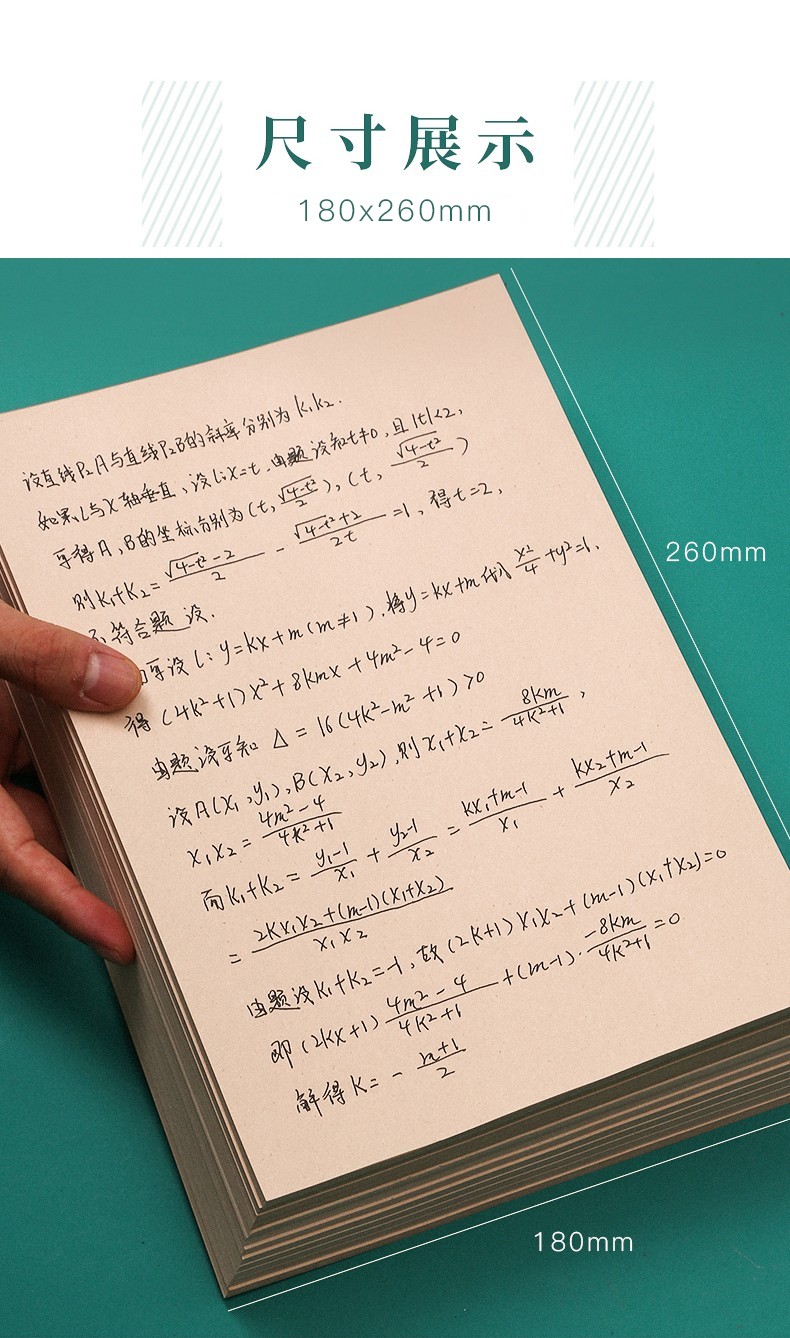 尺寸展示
180x260mm
设直线P₂A与直线P₂B的斜率分别为k₁k₂.
如果l与X轴垂直,设l:x=t,由题设知t≠0,且|t|<2,
可得A,B的坐标分别为(t, √(4-t²)/2),(t, √(4-t²)/2)
则k₁+k₂= (√(4-t²)-2)/2 - (√(4-t²)+2)/2t =1,得t=2,
不符合题设.
可设l:y=kx+m(m≠1).将y=kx+m代入 x²/4 +y²=1.
得(4k²+1)x²+8kmx+4m²-4=0
由题设可知 Δ=16(4k²-m²+1)>0
设A(x₁,y₁),B(x₂,y₂),则x₁+x₂= 8km/(4k²+1),
x₁x₂= (4m²-4)/(4k²+1)
而k₁+k₂= (y₁-1)/x₁ + (y₂-1)/x₂ = (kx₁+m-1)/x₁ + (kx₂+m-1)/x₂
= (2kx₁x₂+(m-1)(x₁+x₂))/x₁x₂
由题设k₁+k₂=-1,故(2k+1)x₁x₂+(m-1)(x₁+x₂)=0
即(2kx+1) (4m²-4)/(4k²+1) +(m-1)· -8km/(4k²+1) =0
解得k=- (m+1)/2
260mm
180mm